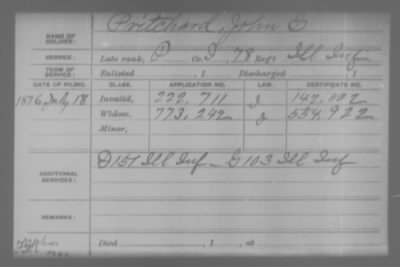 NAME OF SOLDIER: Pritchard, John E
SERVICE: Late rank, P Co. I, 78 Reg't Ill Inf
TERM OF SERVICE: Enlisted , 1 Discharged , 1
DATE OF FILING. CLASS. APPLICATION NO. LAW. CERTIFICATE NO.
1876, July 18 Invalid, 222,711 142,102
Widow, 773,242 554,922
Minor,
ADDITIONAL SERVICES: D 151 Ill Inf – G 103 Ill Inf
REMARKS:
Died , 1 , at